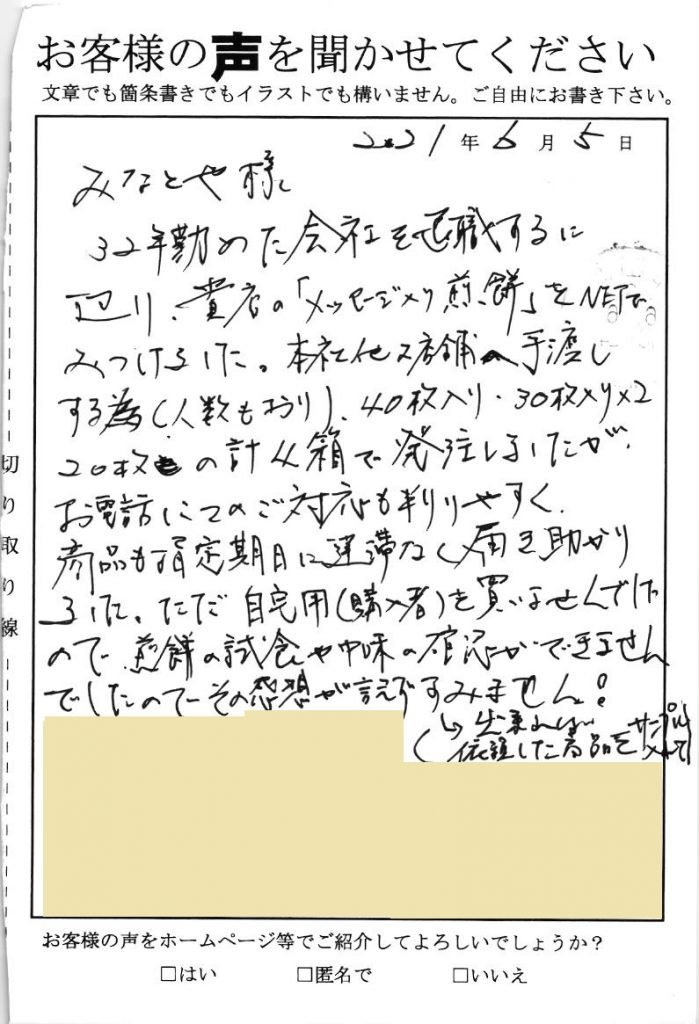 お客様の声を聞かせてください
文章でも箇条書きでもイラストでも構いません。ご自由にお書き下さい。
2021年6月5日
みなとや様
32年勤めた会社を退職するに
辺り、貴店の「メッセージ入り煎餅」をNETで
みつけました。本社他2店舗へ手渡し
する為(人数もおり)、40枚入り・30枚入り×2
20枚の計4箱で発注しましたが、
お電話にてのご対応も判りやすく、
商品も指定期日に遅滞なく届き助かり
ました。ただ自宅用(購入者)を買いませんでした
ので煎餅の試食や中味の確認ができません
でしたのでその感想が言えずすみません!
(↳出来れば
依頼した商品を
切り取り線
お客様の声をホームページ等でご紹介してよろしいでしょうか?
□はい □匿名で □いいえ